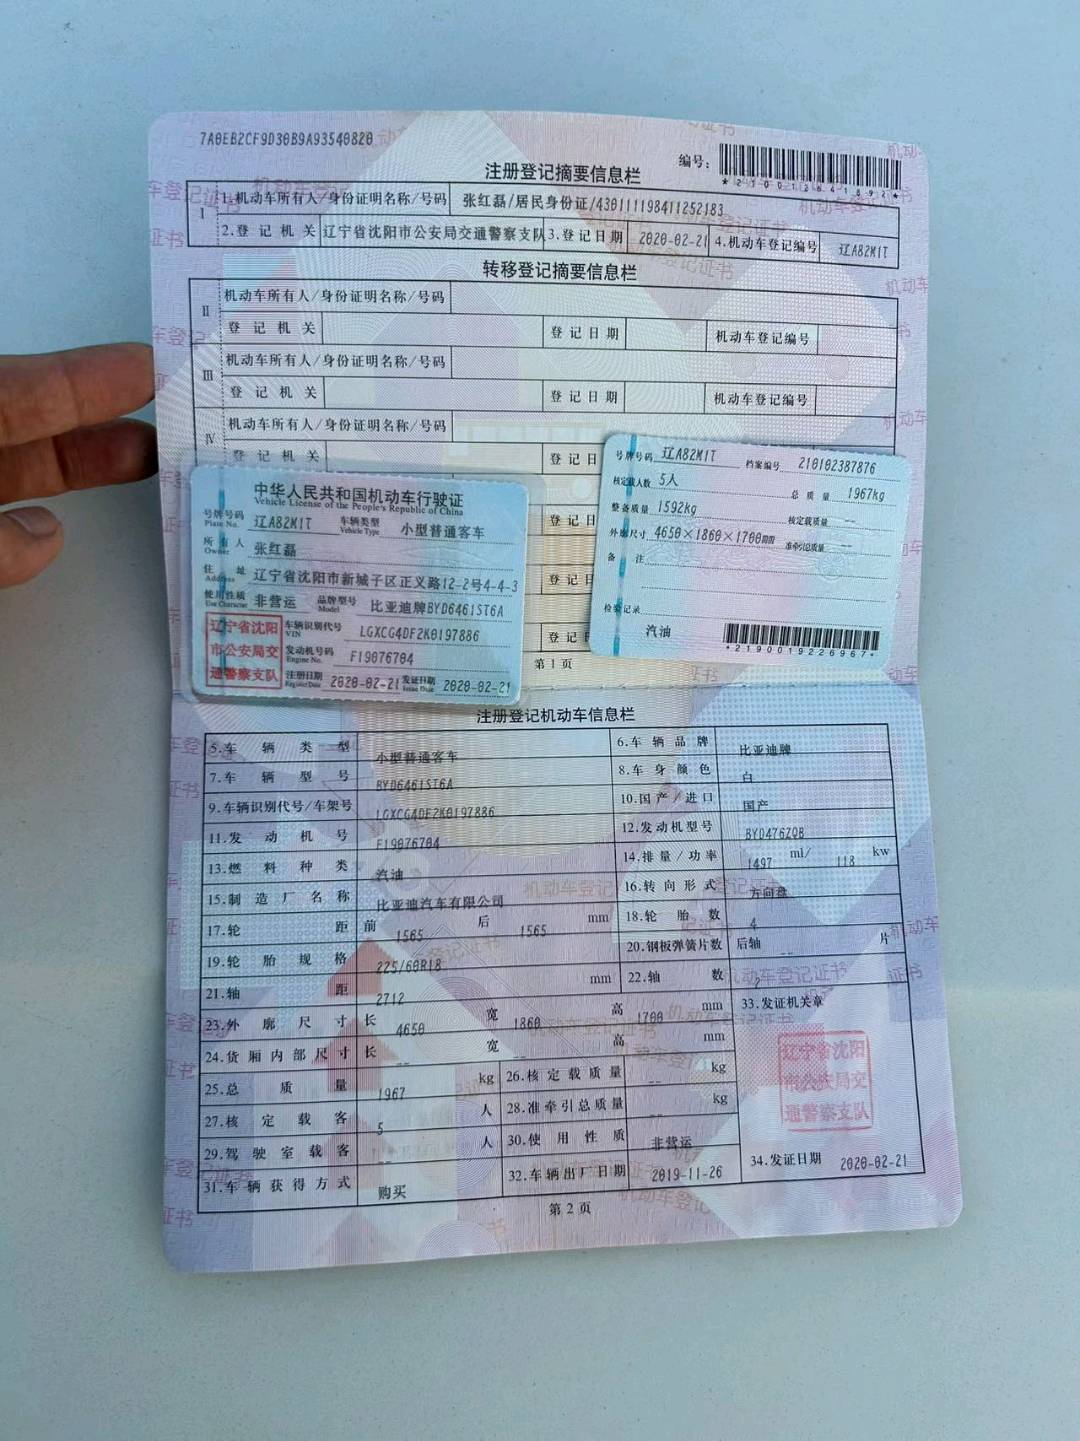 7A0EB2CF9D30B9A93540820
编号:
*210012841892*
注册登记摘要信息栏
I
1.机动车所有人/身份证明名称/号码 张红磊/居民身份证/430111198411252183
2.登记机关 辽宁省沈阳市公安局交通警察支队 3.登记日期 2020-02-21 4.机动车登记编号 辽A82M1T
转移登记摘要信息栏
II
机动车所有人/身份证明名称/号码
登记机关 登记日期 机动车登记编号
III
机动车所有人/身份证明名称/号码
登记机关 登记日期 机动车登记编号
IV
机动车所有人/身份证明名称/号码
登记机关 登记日
登记日
登记日
登记日
第1页
中华人民共和国机动车行驶证
Vehicle License of the People's Republic of China
号牌号码 辽A82M1T 车辆类型 小型普通客车
Plate No. Vehicle Type
所有人 张红磊
Owner
住址 辽宁省沈阳市新城子区正义路12-2号4-4-3
Address
使用性质 非营运 品牌型号 比亚迪牌BYD6461ST6A
Use Character Model
辽宁省沈阳
市公安局交
通警察支队
车辆识别代号 LGXCG4DF2K0197886
VIN
发动机号码 F19076704
Engine No.
注册日期 2020-02-21 发证日期 2020-02-21
Register Date Issue Date
号牌号码 辽A82M1T 档案编号 210102387876
核定载人数 5人 总质量 1967kg
整备质量 1592kg 核定载质量 --
外廓尺寸 4650×1860×1700mm 准牵引总质量 --
备注
检验记录
汽油
*2190019226967*
注册登记机动车信息栏
5.车辆类型 小型普通客车 6.车辆品牌 比亚迪牌
7.车辆型号 BYD6461ST6A 8.车身颜色 白
9.车辆识别代号/车架号 LGXCG4DF2K0197886 10.国产/进口 国产
11.发动机号 F19076704 12.发动机型号 BYD476ZQB
13.燃料种类 汽油 14.排量/功率 1497 ml/ 118 kw
15.制造厂名称 比亚迪汽车有限公司 16.转向形式 方向盘
17.轮距 前 1565 后 1565 mm 18.轮胎数 4
19.轮胎规格 225/60R18 20.钢板弹簧片数 后轴 -- 片
21.轴距 2712 mm 22.轴数 2
23.外廓尺寸 长 4650 宽 1860 高 1700 mm 33.发证机关章
24.货厢内部尺寸 长 -- 宽 -- 高 mm
25.总质量 1967 kg 26.核定载质量 -- kg
27.核定载客 5 人 28.准牵引总质量 -- kg
29.驾驶室载客 -- 人 30.使用性质 非营运
31.车辆获得方式 购买 32.车辆出厂日期 2019-11-26 34.发证日期 2020-02-21
辽宁省沈阳
市公安局交
通警察支队
第2页